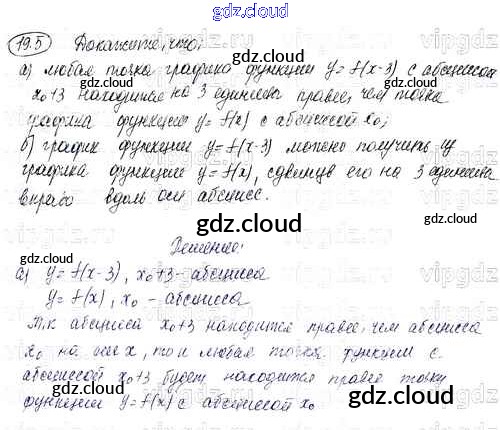 gdz.cloud
19.5 Докажите, что:
а) любая точка графика функции y = f(x-3) с абсциссой
x₀+3 находится на 3 единицы правее, чем точка
графика функции y = f(x) с абсциссой x₀;
б) график функции y = f(x-3) можно получить из
графика функции y = f(x), сдвинув его на 3 единицы
вправо вдоль оси абсцисс.
gdz.cloud
Решение:
а) y = f(x-3), x₀+3 - абсцисса
y = f(x), x₀ - абсцисса
Т.к абсцисса x₀+3 находится правее, чем абсцисса
x₀ на оси x, то и любая точка функции с
абсциссой x₀+3 будет находится правее точки
функции y = f(x) с абсциссой x₀
gdz.cloud